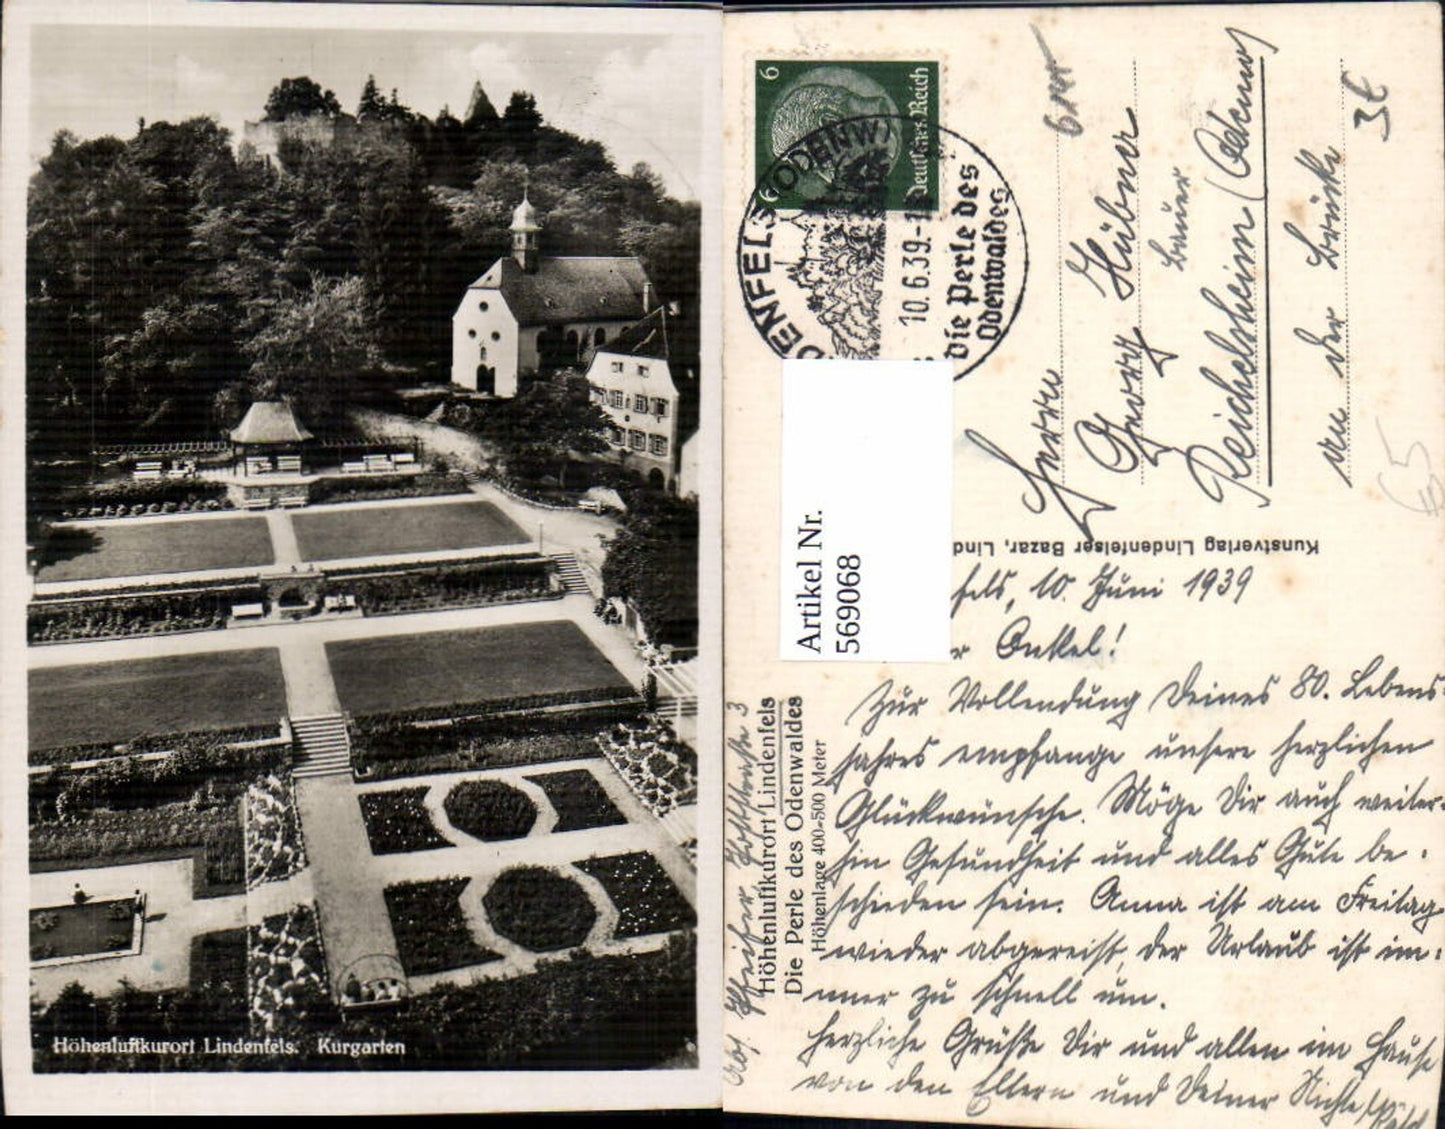 Höhenluftkurort Lindenfels. Kurgarten
6
6
Deutsches Reich
LINDENFELS (ODENW)
10.6.39
Die Perle des
Odenwaldes
Artikel Nr.
569068
Herrn
Georg Hübner
Bauer
Reichelsheim (Odenw)
an der Brücke
3€
Kunstverlag Lindenfelser Bazar, Lind
fels, 10. Juni 1939
r Onkel!
Zur Vollendung Deines 80. Lebens
jahres empfange unsere herzlichen
Glückwünsche. Möge Dir auch weiter-
hin Gesundheit und alles Gute be-
schieden sein. Anna ist am Freitag
wieder abgereist, der Urlaub ist im-
mer zu schnell um.
Herzliche Grüße Dir und allen im Hause
von den Eltern und Deiner Nichte
Höhenluftkurort Lindenfels
Die Perle des Odenwaldes
Höhenlage 400-500 Meter